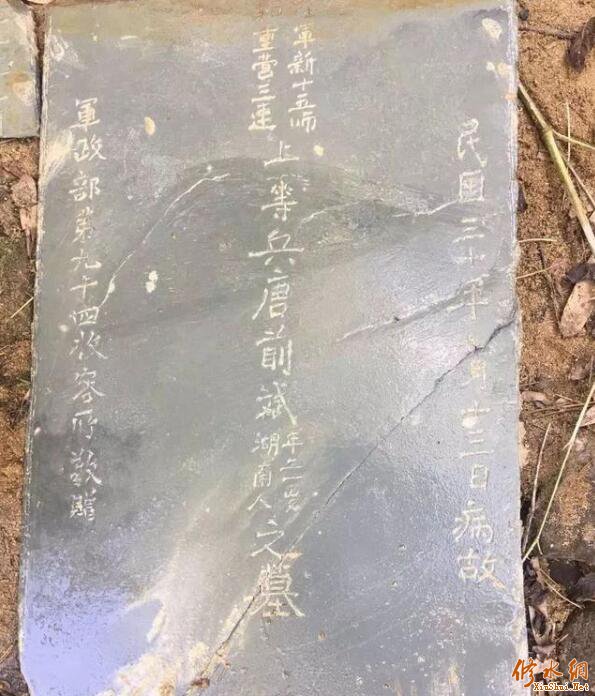 民国三十年 月十三日病故
軍新十五師
重营三連
上等兵唐前斌
年二一岁
湖南人
之墓
軍政部第九十四收容所敬贈
修水網
XiuShui.Net